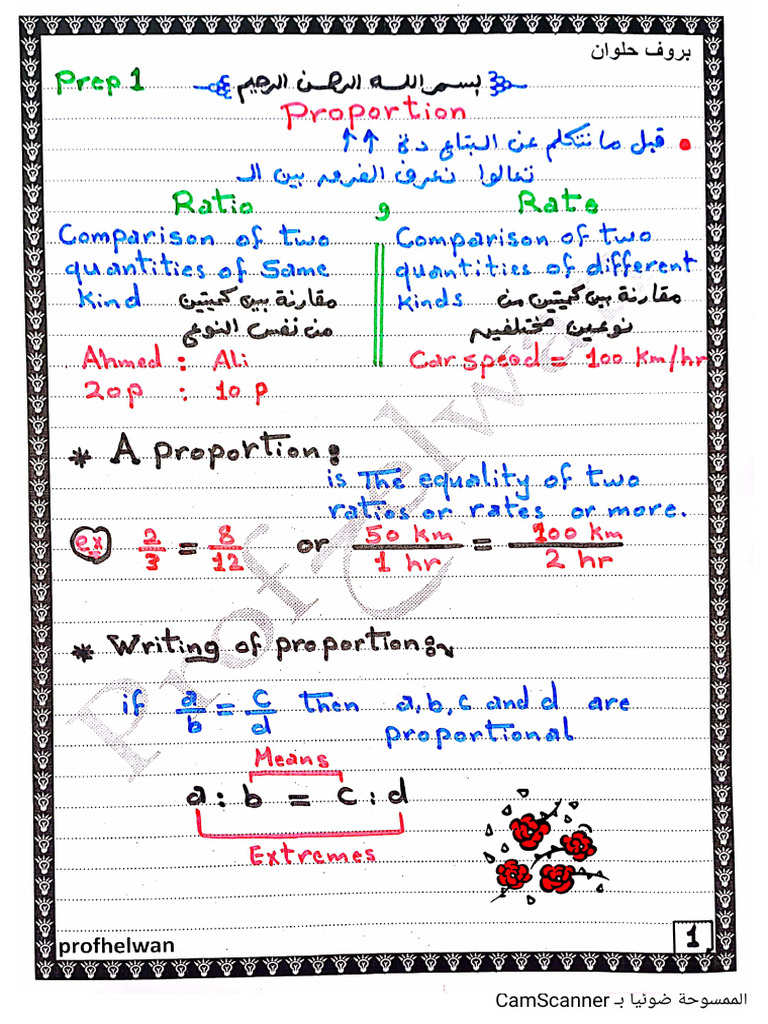 بروف حلوان
Prep 1
بسم الله الرحمن الرحيم
Proportion
• قبل ما نتكلم عن البتاع دة ↑↑
تعالوا نعرف الفرق بين الـ
Ratio و Rate
Comparison of two
quantities of Same
Kind مقارنة بين كميتين
من نفس النوع
Ahmed : Ali
20p : 10 P
Comparison of two
quantities of different
kinds مقارنة بين كميتين من
نوعين مختلفين
Car speed = 100 km/hr
* A proportion:
is The equality of two
ratios or rates or more.
ex 2/3 = 8/12 or 50 km/1 hr = 100 km/2 hr
* Writing of proportion:
if a/b = c/d then a, b, c and d are
proportional
Means
a : b = c : d
Extremes
profhelwan
1
Prof Helwan
الممسوحة ضوئيا بـ CamScanner